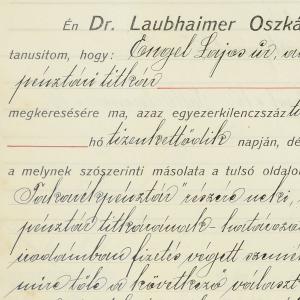 Én Dr. Laubhaimer Oszká
tanusitom, hogy: Engel Lajos úr, a
pénztári titkár
megkeresésére ma, azaz egyezerkilenczszáz ti
hó tizenkettődik napján, dé
a melynek szószerinti másolata a tulsó oldalo
Takarékpénztár" részére neki,
pénztár titkárának határoza
irodámban fizetés végett szemé
mire tőle a következő választ